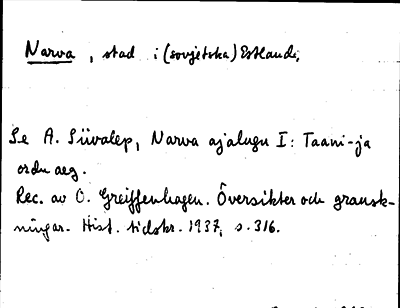 Narva, stad i (sovjetska) Estland;
Se A. Süvalep, Narva ajalugu I: Taani- ja
ordu aeg.
Rec. av O. Greiffenhagen. Översikter och gransk-
ningar. Hist. tidskr. 1937, s. 316.